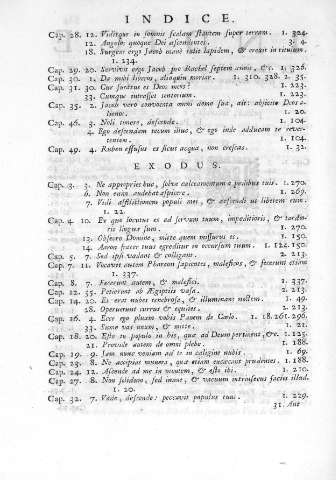 INDICE.
Cap. 28. 12. Viditque in somnis scalam stantem super terram. 1. 324.
12. Angelos quoque Dei ascendentes. 3. 4.
18. Surgens ergo Jacob mane tulit lapidem, & erexit in titulum.
1. 134.
Cap. 29. 20. Servivit ergo Jacob pro Rachel septem annis, &c. 1. 326.
Cap. 30. 1. Da mihi liberos, alioquin moriar. 1. 310. 328. 2. 35.
Cap. 31. 30. Cur furatus es Deos meos? 1. 233.
33. Cumque intrasset tentorium. 1. 233.
Cap. 35. 2. Jacob vero convocata omni domo sua, ait: abjicite Deos alienos.
1. 20.
Cap. 46. 3. Noli timere, descende. 1. 104.
4. Ego descendam tecum illuc, & ego inde adducam te revertentem.
1. 104.
Cap. 49. 4. Ruben effusus es sicut aqua, non crescas. 1. 32.
EXODUS.
Cap. 3. 5. Ne appropries huc, solve calceamentum a pedibus tuis. 1. 270.
6. Non enim audebat aspicere. 1. 269.
7. Vidi afflictionem populi mei, & descendi ut liberem eum.
1. 22.
Cap. 4. 10. Ex quo locutus es ad servum tuum, impeditioris, & tardioris
linguæ sum. 1. 270.
13. Obsecro Domine, mitte quem missurus es. 1. 150.
14. Aaron frater tuus egredietur in occursum tuum. 1. 124. 150.
Cap. 5. 7. Sed ipsi vadant & colligant. 2. 213.
Cap. 7. 11. Vocavit autem Pharaon sapientes, maleficos, & fecerunt etiam
1. 337.
Cap. 8. 7. Fecerunt autem, & malefici. 1. 337.
Cap. 12. 35. Petierunt ab Ægyptiis vasa. 2. 213.
Cap. 14. 20. Et erat nubes tenebrosa, & illuminans noctem. 1. 49.
28. Operuerunt currus & equites. 2. 213.
Cap. 16. 4. Ecce ego pluam vobis Panem de Cœlo. 1. 18. 261. 296.
33. Sume vas unum, & mitte. 1. 21.
Cap. 18. 20. Esto tu populo in his, quæ ad Deum pertinent, &c. 1. 125.
21. Provide autem de omni plebe. 1. 188.
Cap. 19. 9. Jam nunc veniam ad te in caligine nubis. 1. 69.
Cap. 23. 8. Ne accipias munera, quæ etiam excæcant prudentes. 1. 188.
Cap. 24. 12. Ascende ad me in montem, & esto ibi. 1. 210.
Cap. 27. 8. Non solidum, sed inane, & vacuum intrinsecus facies illud.
1. 20.
Cap. 32. 7. Vade, descende: peccavit populus tuus. 1. 229.
31. Aut